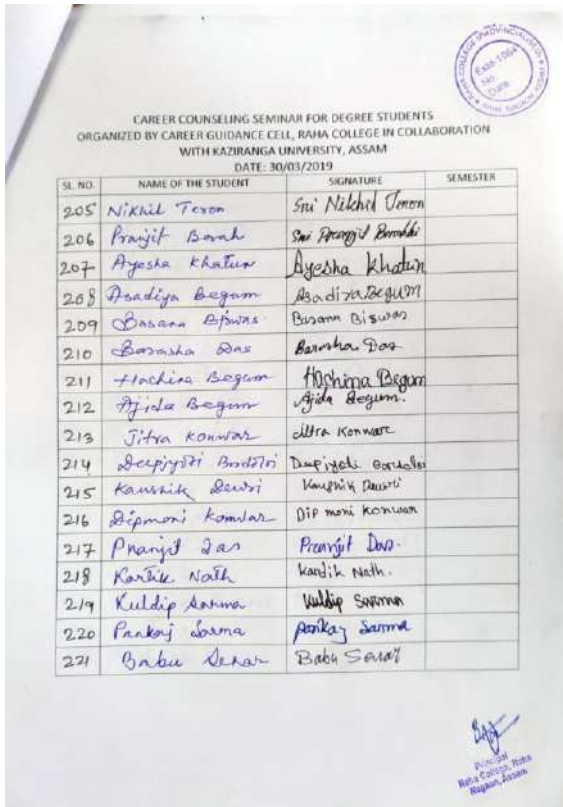 RAHA COLLEGE (PROVINCIALISED)
Estd-1964
No.
Date
CAREER COUNSELING SEMINAR FOR DEGREE STUDENTS
ORGANIZED BY CAREER GUIDANCE CELL, RAHA COLLEGE IN COLLABORATION
WITH KAZIRANGA UNIVERSITY, ASSAM
DATE: 30/03/2019
SL. NO. NAME OF THE STUDENT SIGNATURE SEMESTER
205 Nikhil Teron Sri Nikhil Teron
206 Pranjit Borah Sri
207 Ayesha Khatun Ayesha Khatun
208 Asadiya Begum Asadiya Begum
209 Basana Biswas Basana Biswas
210 Barasha Das Barasha Das
211 Hachina Begum Hachina Begum
212 Ajida Begum Ajida Begum.
213 Jitra Konwar Jitra Konwar
214 Deepjyoti Bordoloi Deepjyoti Bordoloi
215 Kaushik Dewri Kaushik
216 Dipmoni Konwar Dip moni Konwar
217 Pranjit Das Pranjit Das.
218 Kartik Nath Kardik Nath.
219 Kuldip Sarma Kuldip Sarma
220 Pankaj Sarma Pankaj Sarma
221 Babu Senar Babu
Principal
Raha College, Raha
Nagaon, Assam